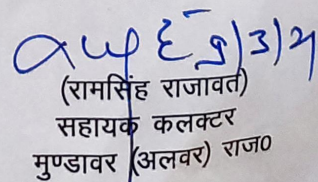 (रामसिंह राजावत)
सहायक कलक्टर
मुण्डावर (अलवर) राज०